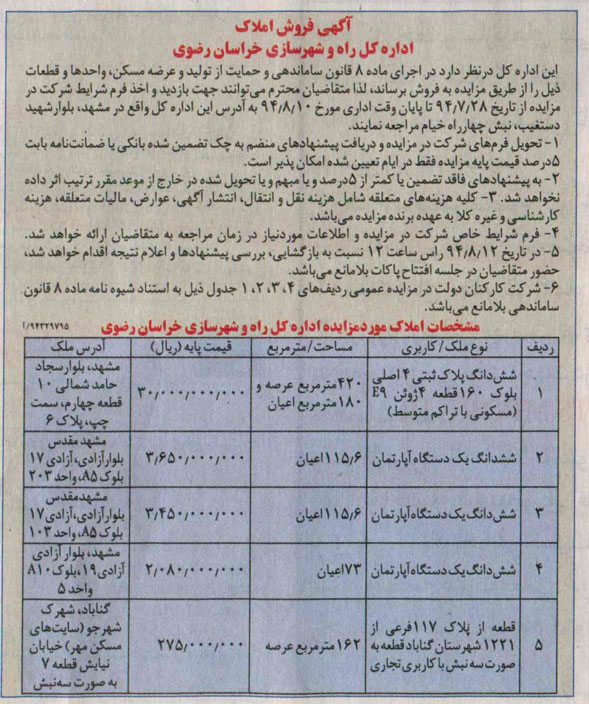 آگهی فروش املاک
اداره کل راه و شهرسازی خراسان رضوی
این اداره کل درنظر دارد در اجرای ماده ۸ قانون ساماندهی و حمایت از تولید و عرضه مسکن، واحدها و قطعات
ذیل را از طریق مزایده به فروش برساند، لذا متقاضیان محترم می‌توانند جهت بازدید و اخذ فرم شرایط شرکت در
مزایده از تاریخ ۹۴/۷/۲۸ تا پایان وقت اداری مورخ ۹۴/۸/۱۰ به آدرس این اداره کل واقع در مشهد، بلوارشهید
دستغیب، نبش چهارراه خیام مراجعه نمایند.
۱- تحویل فرم‌های شرکت در مزایده و دریافت پیشنهادهای منضم به چک تضمین شده بانکی یا ضمانت‌نامه بابت
۵درصد قیمت پایه مزایده فقط در ایام تعیین شده امکان پذیر است.
۲- به پیشنهادهای فاقد تضمین یا کمتر از ۵درصد و یا مبهم و یا تحویل شده در خارج از موعد مقرر ترتیب اثر داده
نخواهد شد. ۳- کلیه هزینه‌های متعلقه شامل هزینه نقل و انتقال، انتشار آگهی، عوارض، مالیات متعلقه، هزینه
کارشناسی و غیره کلا به عهده برنده مزایده می‌باشد.
۴- فرم شرایط خاص شرکت در مزایده و اطلاعات موردنیاز در زمان مراجعه به متقاضیان ارائه خواهد شد.
۵- در تاریخ ۹۴/۸/۱۲ راس ساعت ۱۲ نسبت به بازگشایی، بررسی پیشنهادها و اعلام نتیجه اقدام خواهد شد،
حضور متقاضیان در جلسه افتتاح پاکات بلامانع می‌باشد.
۶- شرکت کارکنان دولت در مزایده عمومی ردیف‌های ۴، ۳، ۲، ۱ جدول ذیل به استناد شیوه نامه ماده ۸ قانون
ساماندهی بلامانع می‌باشد.
مشخصات املاک موردمزایده اداره کل راه و شهرسازی خراسان رضوی
۹۴۳۲۹۷۹۵/ا
ردیف نوع ملک/کاربری مساحت/مترمربع قیمت پایه (ریال) آدرس ملک
۱
شش‌دانگ پلاک ثبتی ۴ اصلی
بلوک ۱۶۰ قطعه ۴ژوئن E۹
(مسکونی با تراکم متوسط)
۴۲۰مترمربع عرصه و
۱۸۰مترمربع اعیان
۳۰/۰۰۰/۰۰۰/۰۰۰
مشهد، بلوار سجاد
حامد شمالی ۱۰
قطعه چهارم، سمت
چپ، پلاک ۶
۲
ششدانگ یک دستگاه آپارتمان
۱۱۵/۶اعیان
۳/۶۵۰/۰۰۰/۰۰۰
مشهد مقدس
بلوارآزادی، آزادی ۱۷
بلوک ۸۵، واحد ۲۰۳
۳
شش‌دانگ یک دستگاه آپارتمان
۱۱۵/۶اعیان
۳/۴۵۰/۰۰۰/۰۰۰
مشهدمقدس
بلوارآزادی، آزادی ۱۷
بلوک ۸۵، واحد ۱۰۳
۴
شش‌دانگ یک دستگاه آپارتمان
۷۳اعیان
۲/۰۸۰/۰۰۰/۰۰۰
مشهد، بلوار آزادی
آزادی ۱۹، بلوک A۱۰
واحد ۵
۵
قطعه از پلاک ۱۱۷فرعی از
۱۲۲۱ شهرستان گناباد قطعه به
صورت سه نبش با کاربری تجاری
۱۶۲مترمربع عرصه
۲۷۵/۰۰۰/۰۰۰
گناباد، شهرک
شهرجو (سایت‌های
مسکن مهر) خیابان
نیایش قطعه ۷
به صورت سه‌نبش